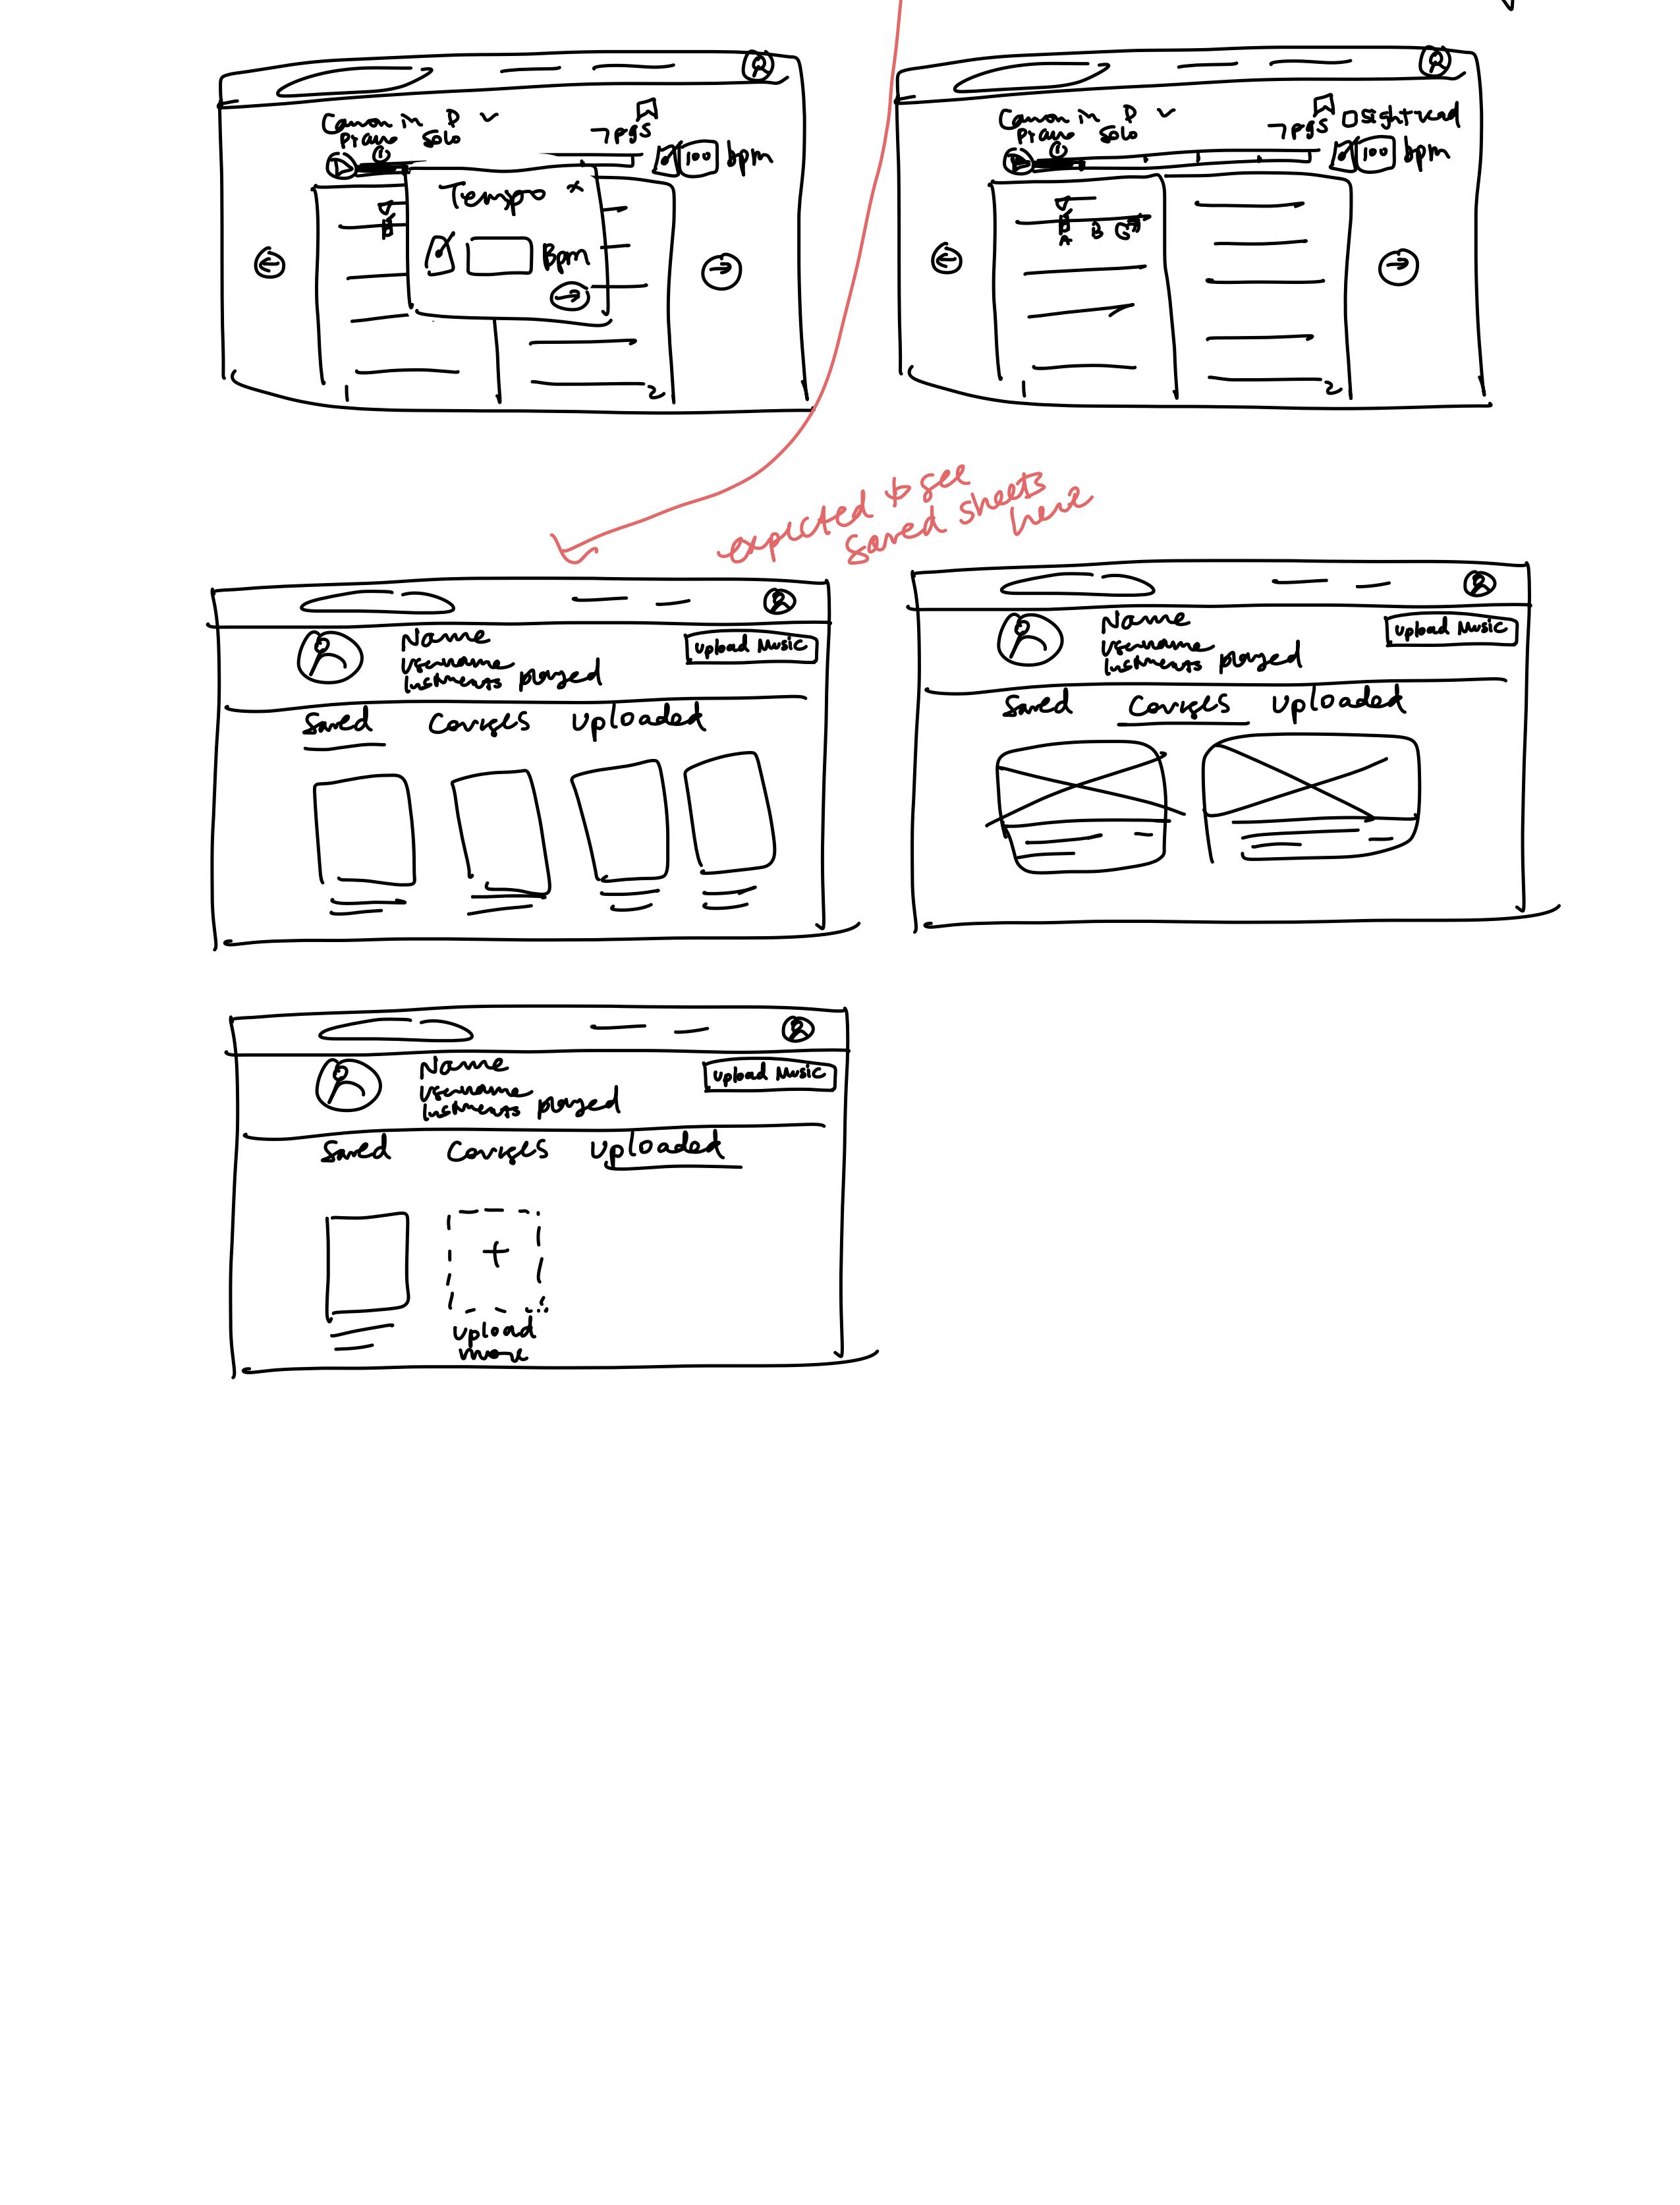 Canon in D
Piano Solo
7 pgs
100 bpm
Tempo x
Bpm
1
2
Canon in D
Piano Solo
7 pgs
Sightread
100 bpm
A B G
1
2
expected to see
saved sheets
here
Name
Username
Instruments played
Upload Music
Saved Courses Uploaded
Name
Username
Instruments played
Upload Music
Saved Courses Uploaded
Name
Username
Instruments played
Upload Music
Saved Courses Uploaded
+
Upload
more